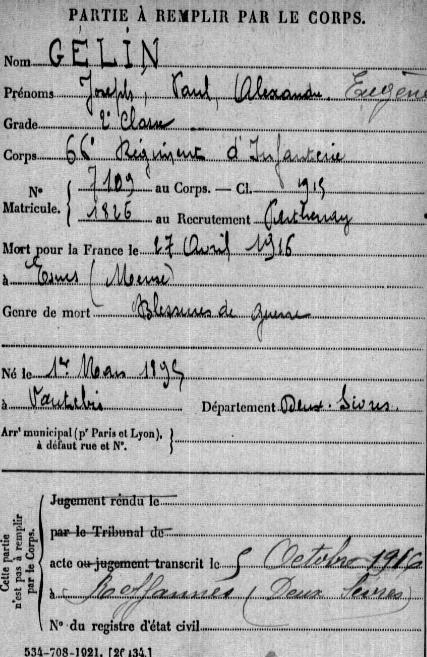 PARTIE À REMPLIR PAR LE CORPS.
Nom GÉLIN
Prénoms Joseph, Paul, Alexandre Eugène
Grade 2e Classe
Corps 66e Régiment d'Infanterie
No Matricule. { 7109 au Corps. — Cl. 1915
1826 au Recrutement Parthenay
Mort pour la France le 27 Avril 1916
à Esnes (Meuse)
Genre de mort Blessures de guerre
Né le 1er Mars 1895
à Vautebis Département Deux-Sèvres.
Arrt municipal (pr Paris et Lyon), à défaut rue et No. }
Cette partie n'est pas à remplir par le Corps.
Jugement rendu le
par le Tribunal de
acte ou jugement transcrit le 5 Octobre 1916
à Reffannes (Deux Sèvres)
No du registre d'état civil
534-708-1921. [26434.]